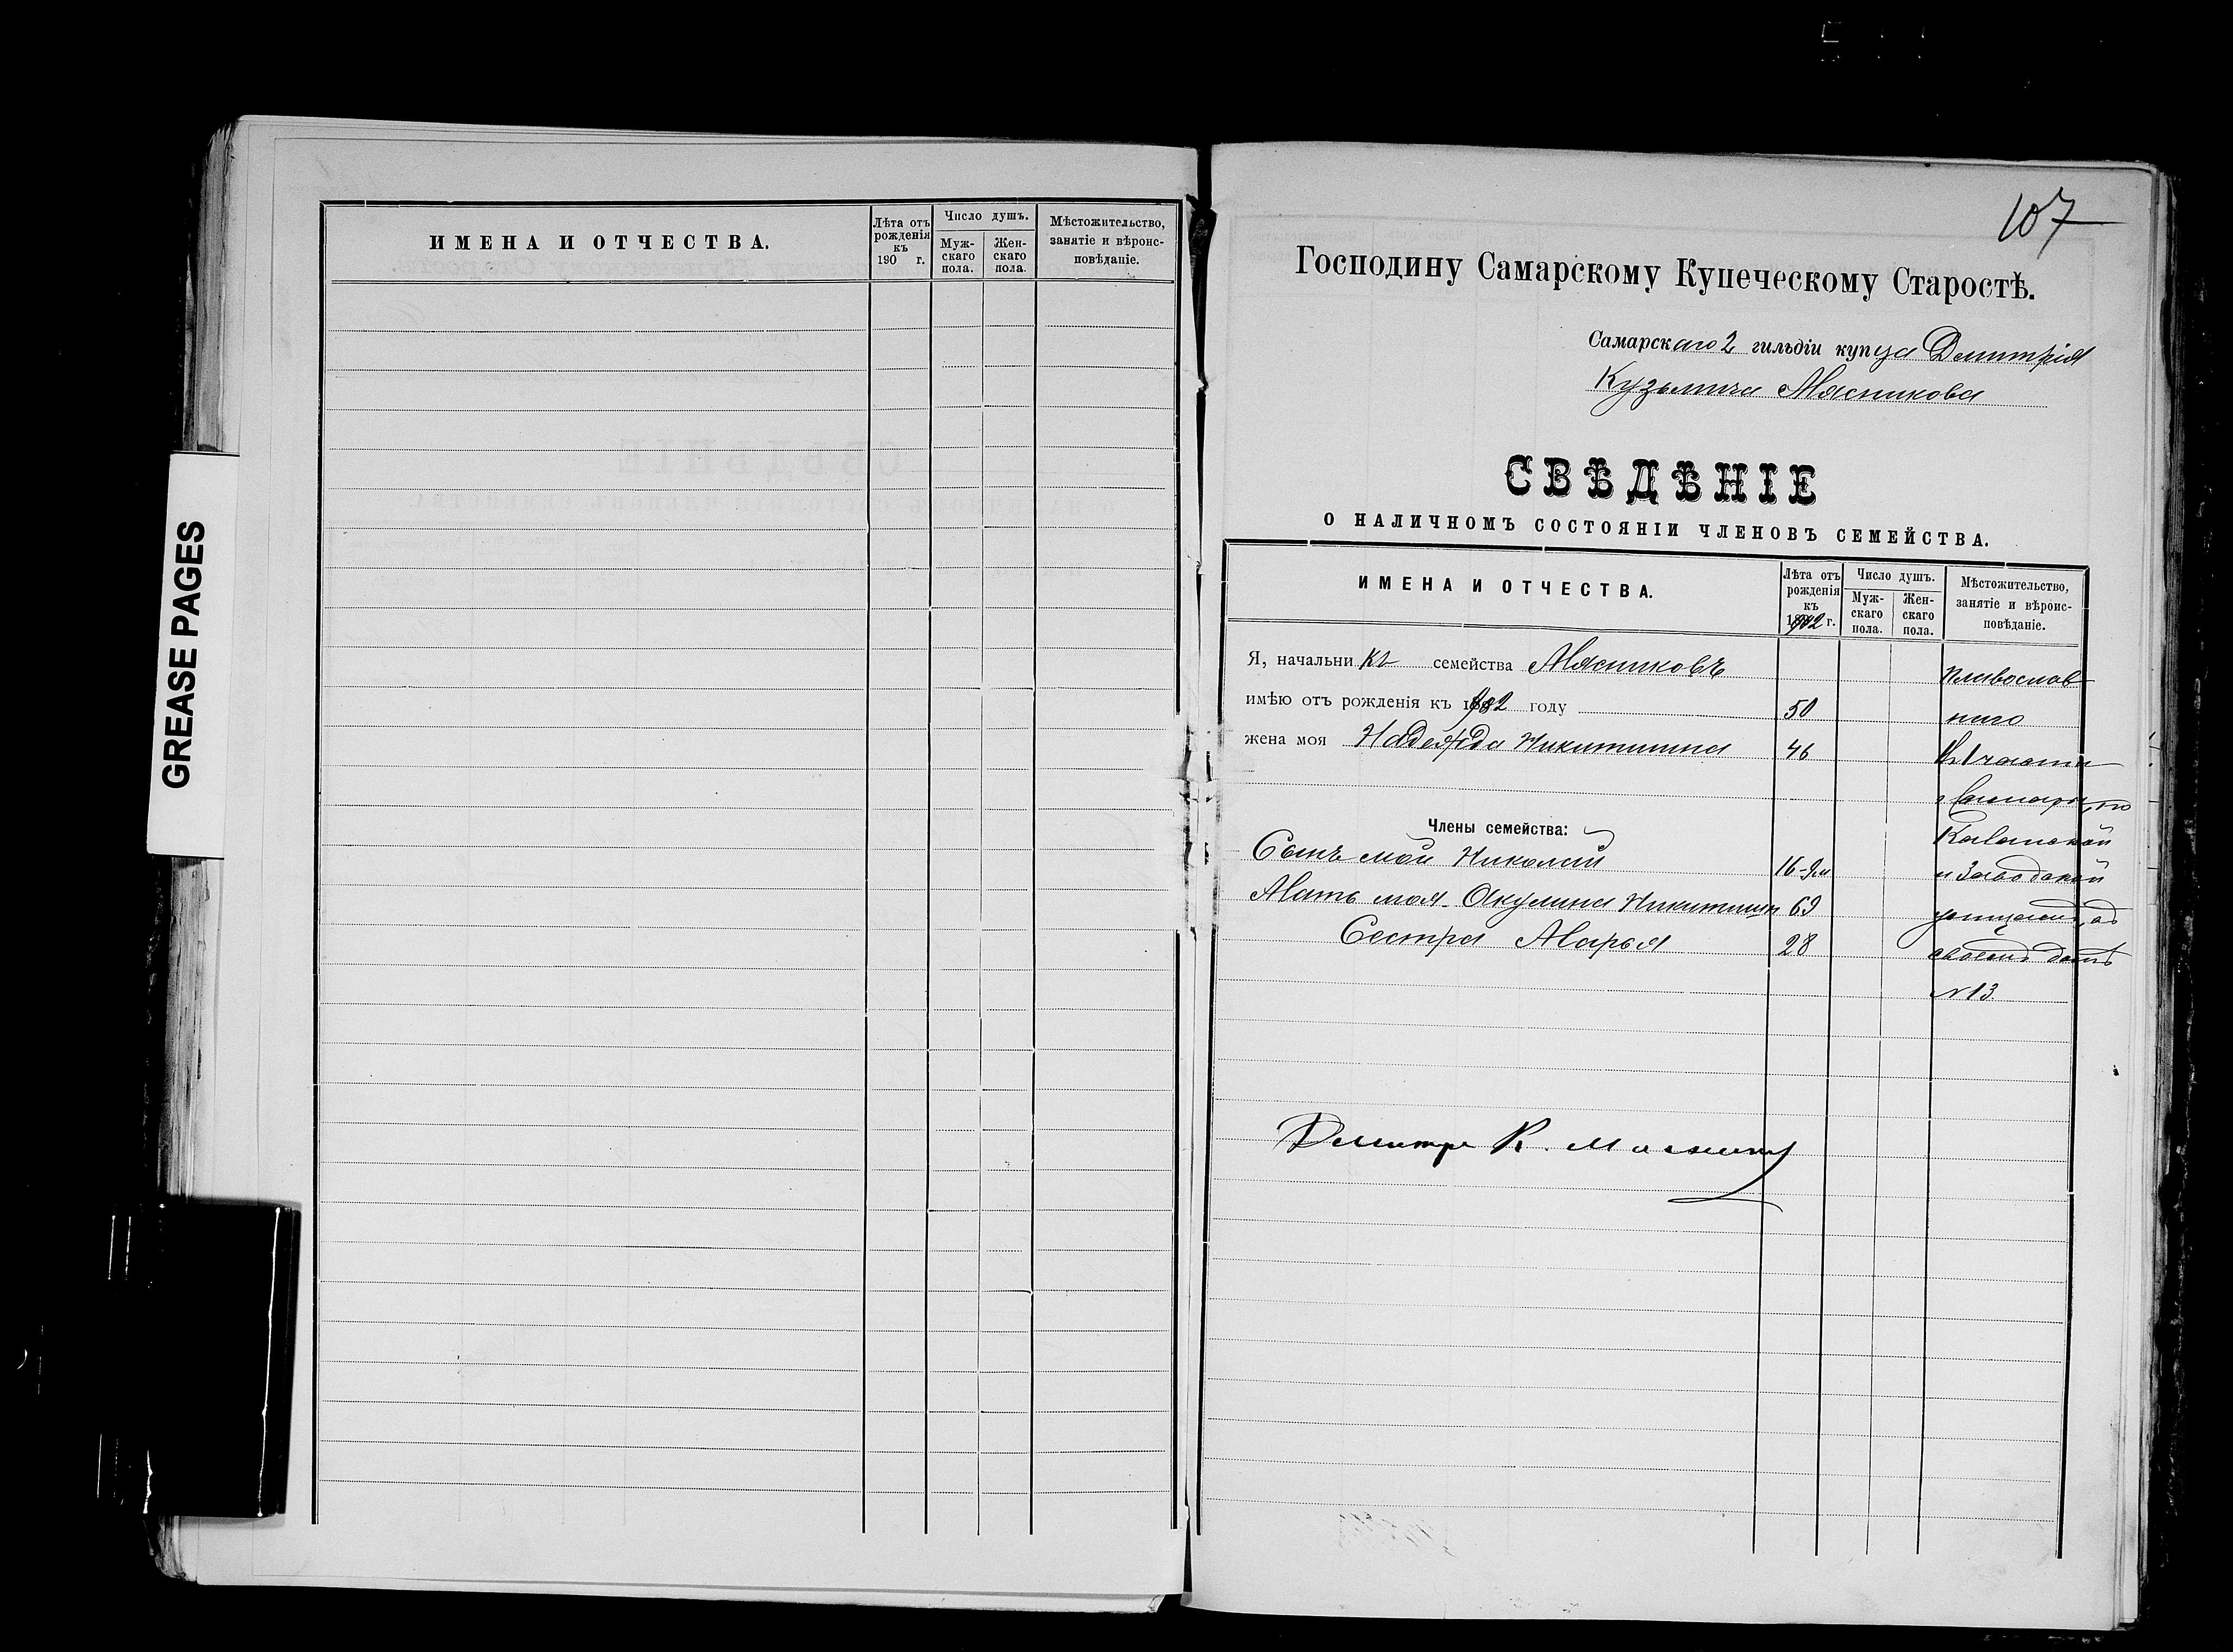 GREASE PAGES
ИМЕНА И ОТЧЕСТВА.
Лѣта отъ рожденія къ 190 г.
Число душъ.
Муж-скаго пола.
Жен-скаго пола.
Мѣстожительство, занятіе и вѣроис-повѣданіе.
107
Господину Самарскому Купеческому Старостѣ.
Самарскаго 2 гильдіи купца Дмитрія
Кузьмича Мясникова
СВѢДѢНІЕ
О НАЛИЧНОМЪ СОСТОЯНІИ ЧЛЕНОВЪ СЕМЕЙСТВА.
ИМЕНА И ОТЧЕСТВА.
Лѣта отъ рожденія къ 1902 г.
Число душъ.
Муж-скаго пола.
Жен-скаго пола.
Мѣстожительство, занятіе и вѣроис-повѣданіе.
Я, начальникъ семейства Мясниковъ
православ
имѣю отъ рожденія къ 1902 году 50
наго
жена моя Надежда Никитишна 46
1 части
г Самары, по
Члены семейства:
Казанской
Сынъ мой Николай 16
и Заводской
Мать моя Акулина Никитишн 69
Сестра Марья 28
своемъ домѣ
N 13.
Дмитре К. Мясник